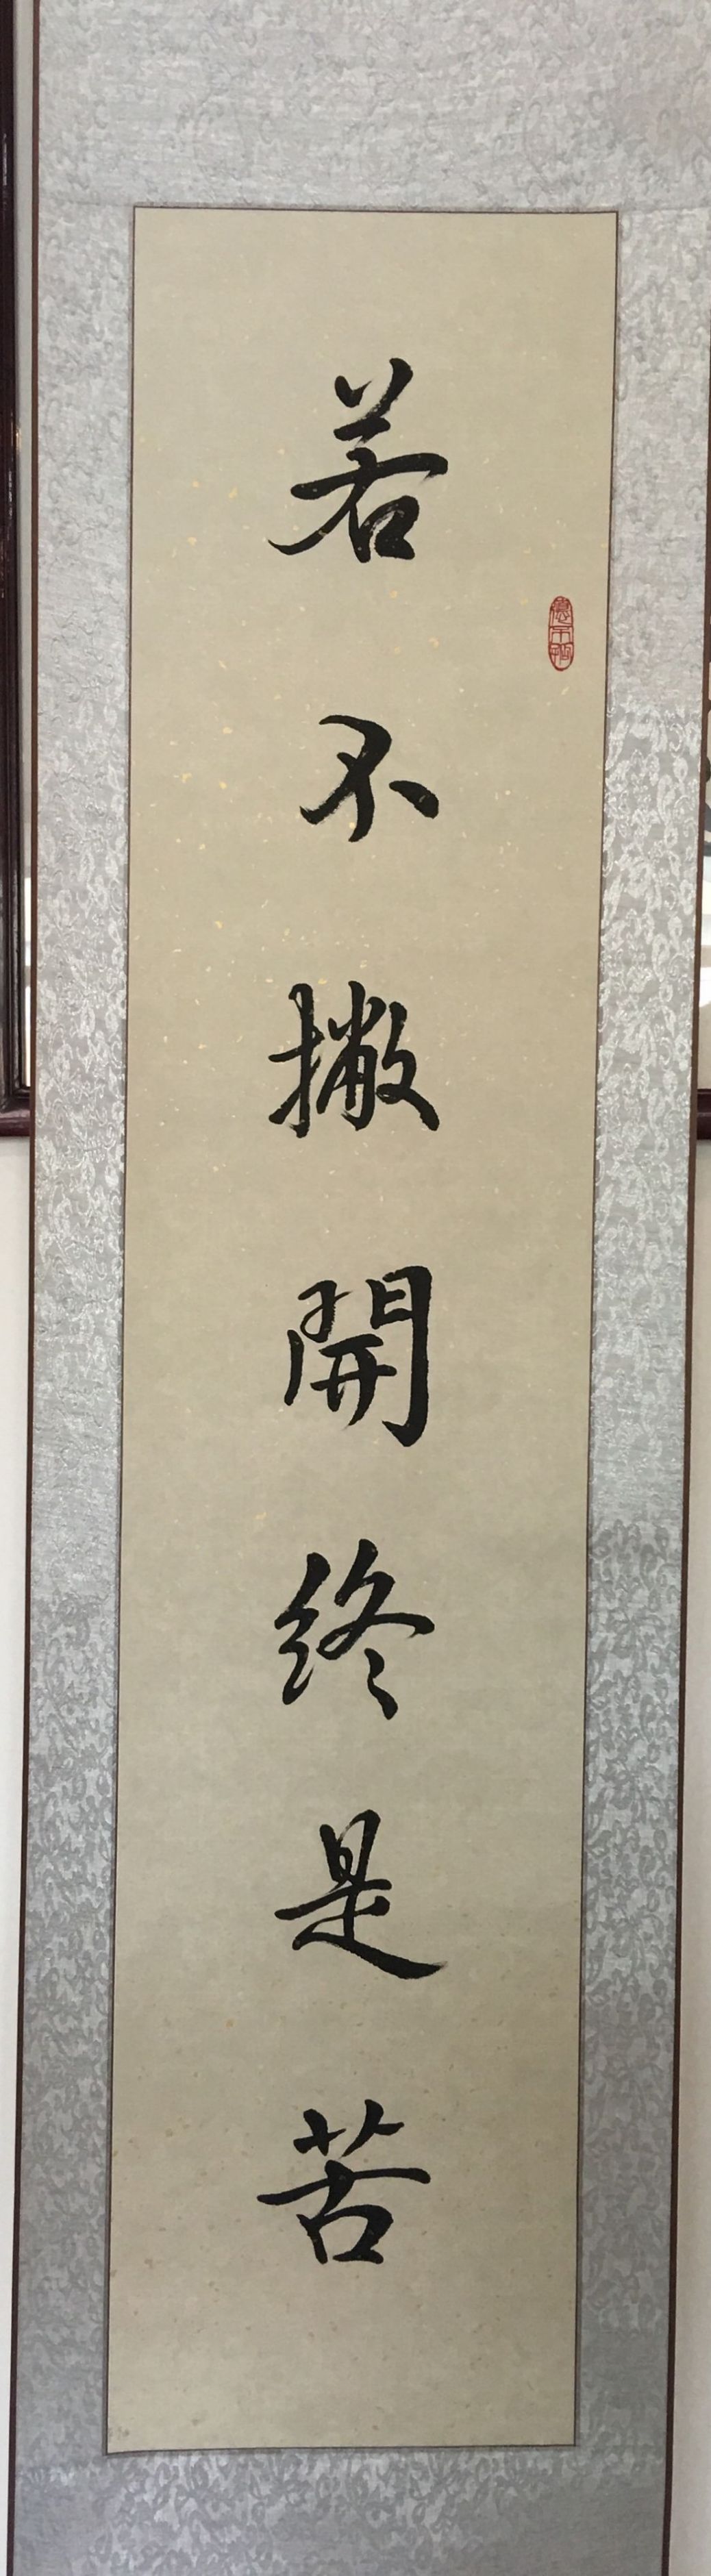 若不撇開終是苦